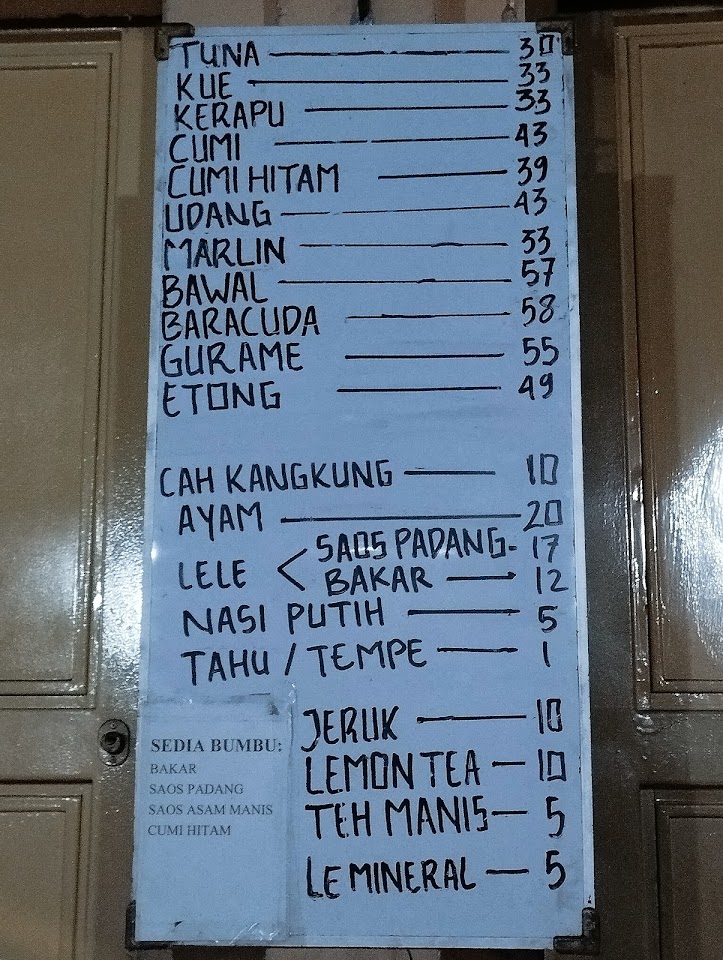 TUNA — 30
KUE — 33
KERAPU — 33
CUMI — 43
CUMI HITAM — 39
UDANG — 43
MARLIN — 33
BAWAL — 57
BARACUDA — 58
GURAME — 55
ETONG — 49
CAH KANGKUNG — 10
AYAM — 20
LELE < SAOS PADANG - 17
BAKAR — 12
NASI PUTIH — 5
TAHU / TEMPE — 1
JERUK — 10
LEMON TEA — 10
TEH MANIS — 5
LE MINERAL — 5
SEDIA BUMBU:
BAKAR
SAOS PADANG
SAOS ASAM MANIS
CUMI HITAM